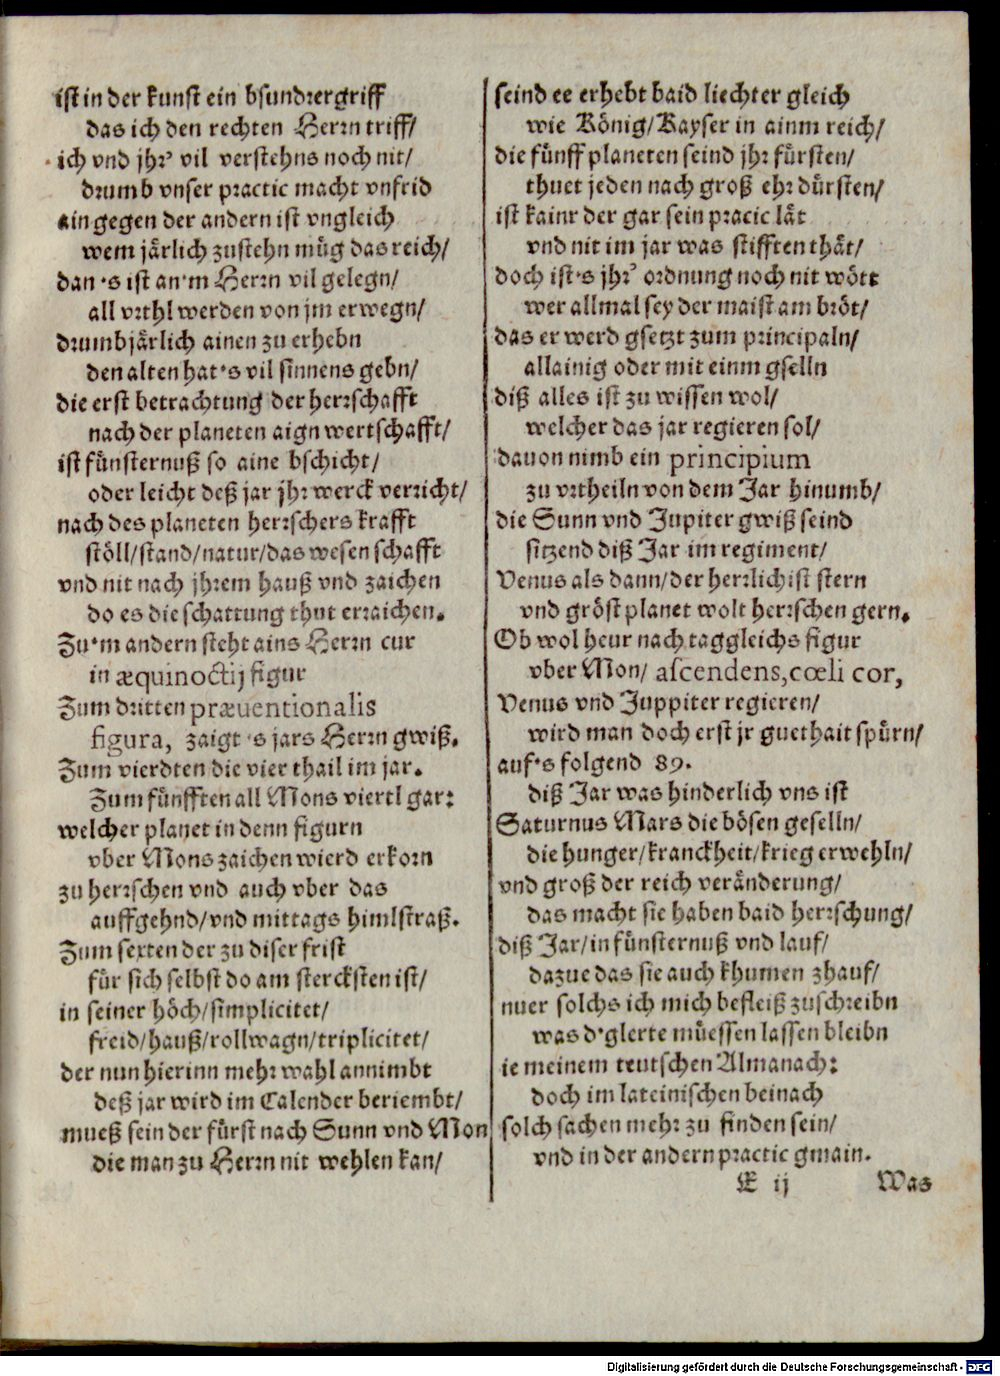 ist in der kunst ein bsundrergriff
das ich den rechten Herrn triff/
ich vnd jhr' vil verstehns noch nit/
drumb vnser practic macht vnfrid
ain gegen der andern ist vngleich
wem järlich zustehn müg das reich/
dan 's ist an'm Herrn vil gelegn/
all vrthl werden von jm erwegn/
drumb järlich ainen zu erhebn
den alten hat's vil sinnens gebn/
die erst betrachtung der herrschafft
nach der planeten aign wertschafft/
ist fünsternuß so aine bschicht/
oder leicht deß jar jhr werck verricht/
nach des planeten herrschers krafft
stöll/stand/natur/das wesen schafft
vnd nit nach jhrem hauß vnd zaichen
do es die schattung thut erraichen.
Zu'm andern steht ains Herrn cur
in æquinoctij figur
Zum dritten præuentionalis
figura, zaigt 's jars Herrn gwiß.
Zum vierdten die vier thail im jar.
Zum fünfften all Mons viertl gar:
welcher planet in denn figurn
vber Mons zaichen wierd erkorn
zu herrschen vnd auch vber das
auffgehnd/vnd mittags himlstraß.
Zum sexten der zu diser frist
für sich selbst do am stercksten ist/
in seiner höch/simplicitet/
freid/hauß/rollwagn/triplicitet/
der nun hierinn mehr wahl annimbt
deß jar wird im Calender beriembt/
mueß sein der fürst nach Sunn vnd Mon
die man zu Herrn nit wehlen kan/
seind ee erhebt baid liechter gleich
wie König/Kayser in ainm reich/
die fünff planeten seind jhr fürsten/
thuet jeden nach groß ehr dürsten/
ist kainr der gar sein pracic lät
vnd nit im jar was stifften thät/
doch ist's jhr' ordnung noch nit wött
wer allmal sey der maist am bröt/
das er werd gsetzt zum principaln/
allainig oder mit einm gselln
diß alles ist zu wissen wol/
welcher das jar regieren sol/
dauon nimb ein principium
zu vrtheiln von dem Jar hinumb/
die Sunn vnd Jupiter gwiß seind
sitzend diß Jar im regiment/
Venus als dann/der herrlich ist stern
vnd gröst planet wolt herrschen gern.
Ob wol heur nach taggleichs figur
vber Mon/ ascendens, cœli cor,
Venus vnd Juppiter regieren/
wird man doch erst jr guethait spürn/
auf's folgend 89.
diß Jar was hinderlich vns ist
Saturnus Mars die bösen geselln/
die hunger/kranckheit/krieg erwehln/
vnd groß der reich veränderung/
das macht sie haben baid herrschung/
diß Jar/in fünsternuß vnd lauf/
dazue das sie auch khumen zhauf/
nuer solchs ich mich befleiß zuschreibn
was d'glerte müessen lassen bleibn
ie meinem teutschen Almanach:
doch im lateinischen beinach
solch sachen mehr zu finden sein/
vnd in der andern practic gmain.
E ij Was
Digitalisierung gefördert durch die Deutsche Forschungsgemeinschaft - DFG